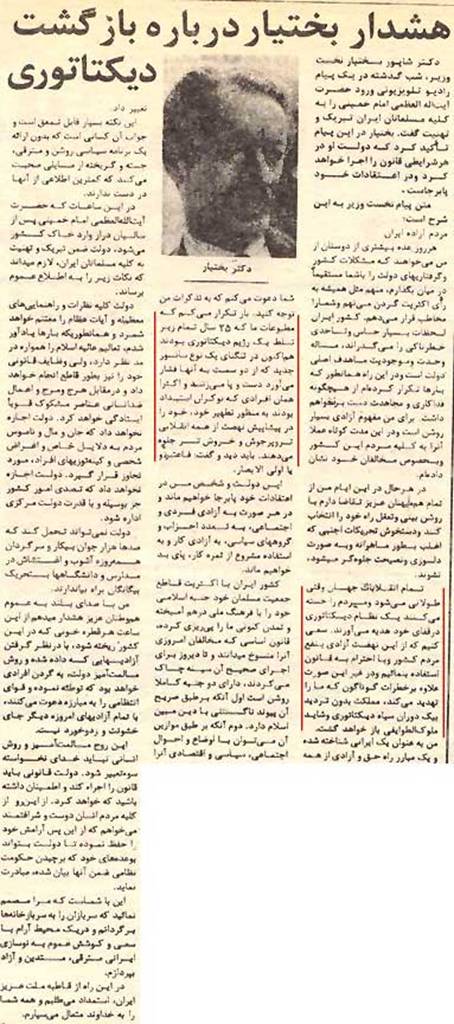 هشدار بختیار درباره بازگشت
دیکتاتوری
دکتر شاپور بختیار نخست
وزیر، شب گذشته در یک پیام
رادیو تلویزیونی ورود حضرت
آیت‌اله العظمی امام خمینی را به
کلیه مسلمانان ایران تبریک و
تهنیت گفت. بختیار در این پیام
تأکید کرد که دولت او در
هرشرایطی قانون را اجرا خواهد
کرد ودر اعتقادات خود
پابرجاست.
متن پیام نخست وزیر به این
شرح است:
مردم آزاده ایران
هرروز عده بیشتری از دوستان از
من می‌خواهند که مشکلات کشور
وگرفتاریهای دولت را باشما مستقیماً
در میان بگذارم، منهم مثل همیشه به
رأی اکثریت گردن می‌نهم وشمارا
مخاطب قرار می‌دهم. کشور ایران
لحظات بسیار حساس وتاحدی
خطرناکی را می‌گذراند، مساله
وحدت وموجودیت ماهدف اصلی
دولت است ودر این راه همانطور که
بارها تکرار کرده‌ام از هیچگونه
فداکاری و مجاهدت دست برنخواهم
داشت. برای من مفهوم آزادی بسیار
روشن است ودر این مدت کوتاه عملا
آنرا به کلیه مردم این کشور
وبخصوص مخالفان خود نشان
داده‌ام.
در هرحال در این ایام من از
تمام هم‌میهنان عزیز تقاضا دارم با
روشن بینی وتعقل راه خود را انتخاب
کند ودستخوش تحریکات اجنبی که
اغلب بطور ماهرانه وبه صورت
دلسوزی ونصیحت جلوه‌گر میشود،
نشوند.
تمام انقلابات جهان وقتی
طولانی می‌شود ومردم را خسته
می‌کنند یک نظام دیکتاتوری
درقفای خود هدیه می‌آورند. سعی
کنیم که از این نهضت آزادی بنفع
مردم کشور وبا احترام به قانون
استفاده بنمائیم ودر غیر این صورت
علاوه برخطرات گوناگون که ما را
تهدید می‌کند، مملکت بدون تردید
بیک دوران سیاه دیکتاتوری وشاید
ملوک‌الطوایفی باز خواهد گشت.
من به عنوان یک ایرانی شناخته شده
و یک مبارز راه حق و آزادی از همه
دکتر بختیار
شما دعوت می‌کنم که به تذکرات من
توجه کنید. باز تکرار می‌کنم که
مطبوعات ما که ۲۵ سال تمام زیر
تسلط یک رژیم دیکتاتوری بودند
هم‌اکنون در تنگنای یک نوع سانسور
جدید که از دو سمت به آنها فشار
می‌آورد دست و پا می‌زنند و اکثرا
همان افرادی که نوکران استبداد
بودند به منظور تطهیر خود، خود را
در پیشاپیش نهضت از همه انقلابی
تر وپرجوش و خروش تر جلوه
می‌دهند. باید دید و گفت: فاعتبرو
یا اولی الابصار.
این دولت و شخص من در
اعتقادات خود پابرجا خواهیم ماند و
در هر صورت به آزادی فردی و
اجتماعی، به تعدد احزاب و
گروههای سیاسی، به آزادی کار و به
استفاده مشروع از ثمره کار، پای بند
خواهیم ماند.
کشور ایران با اکثریت قاطع
جمعیت مسلمان خود جنبه اسلامی
خود را با فرهنگ ملی درهم آمیخته
و تمدن کنونی ما را پی‌ریزی کرده،
قانون اساسی که مخالفان امروزی
آنرا منسوخ میدانند و تا دیروز برای
اجرای صحیح آن سینه چاک
می‌کردند، دارای دو جنبه کاملا
روشن است اول آنکه برطبق صریح
آن پیوند ناگسستنی با دین مبین
اسلام دارد. دوم آنکه بر طبق موازین
آن می‌توان با اوضاع و احوال
اجتماعی، سیاسی و اقتصادی آنرا
تغییر داد
این نکته بسیار قابل تعمق است و
جواب آن کسانی است که بدون ارائه
یک برنامه سیاسی روشن و مترقی،
جسته و گریخته از مسایلی صحبت
می‌کنند که کمترین اطلاعی از آنها
در دست ندارند.
در این ساعات که حضرت
آیت‌الله‌العظمی امام خمینی پس از
سالیان دراز وارد خاک کشور
می‌شود، دولت ضمن تبریک و تهنیت
به کلیه مسلمانان ایران، لازم میداند
که نکات زیر را به اطلاع عموم
برساند.
دولت کلیه نظرات و راهنمایی‌های
معظم‌له و آیات عظام را مغتنم خواهد
شمرد و همانطوریکه بارها یادآور
شدم، تعالیم عالیه اسلام را همواره در
مد نظر دارد، ولی وظایف قانونی
خود را نیز بطور قاطع انجام خواهد
داد و درمقابل هرج ومرج و اعمال
ضدانسانی عناصر مشکوک قویاً
ایستادگی خواهد کرد. دولت اجازه
نخواهد داد که جان و مال و ناموس
مردم به دلایل خاص و اغراض
شخصی و کینه‌توزیهای افراد، مورد
تجاوز قرار گیرد. دولت اجازه
نخواهد داد که تصدی امور کشور
جز بوسیله و با قدرت دولت مرکزی
اداره شود.
دولت نمی‌تواند تحمل کند که
صدها هزار جوان بیکار و سرگردان
همه‌روزه آشوب و اغتشاش در
مدارس و دانشگاهها بتحریک
بیگانگان براه بیاندازند.
من با صدای بلند به عموم
هموطنان عزیز هشدار میدهم از این
ساعت هرقطره خونی که در این
کشور ریخته شود، با در نظر گرفتن
آزادیهایی که داده شده و روش
مسالمت‌آمیز دولت، به گردن افرادی
خواهد بود که توطئه نموده و قوای
انتظامی را به مبارزه دعوت می‌کنند،
با تمام آزادیهای امروزه دیگر جای
خشونت و زدوخورد نیست.
این روح مسالمت‌آمیز و روش
انسانی نباید خدای نخواسته
سوءتعبیر شود. دولت قانونی باید
قانون را اجراء کند و اطمینان داشته
باشید که خواهد کرد. از این‌رو از
کلیه مردم انسان دوست و شرافتمند
می‌خواهم که از این پس آرامش خود
را حفظ نموده تا دولت بتواند
بوعده‌های خود که برچیدن حکومت
نظامی ضمن آنها بیان شده، مبادرت
نماید.
این با شماست که مرا مصمم
نمائید که سربازان را به سربازخانه‌ها
برگردانم و دریک محیط آرام با
سعی و کوشش عموم به نوسازی
ایرانی مترقی، متدین و آزاد
بپردازم.
در این راه از قاطبه ملت عزیز
ایران، استمداد می‌طلبم و همه شما
را به خداوند متعال می‌سپارم.